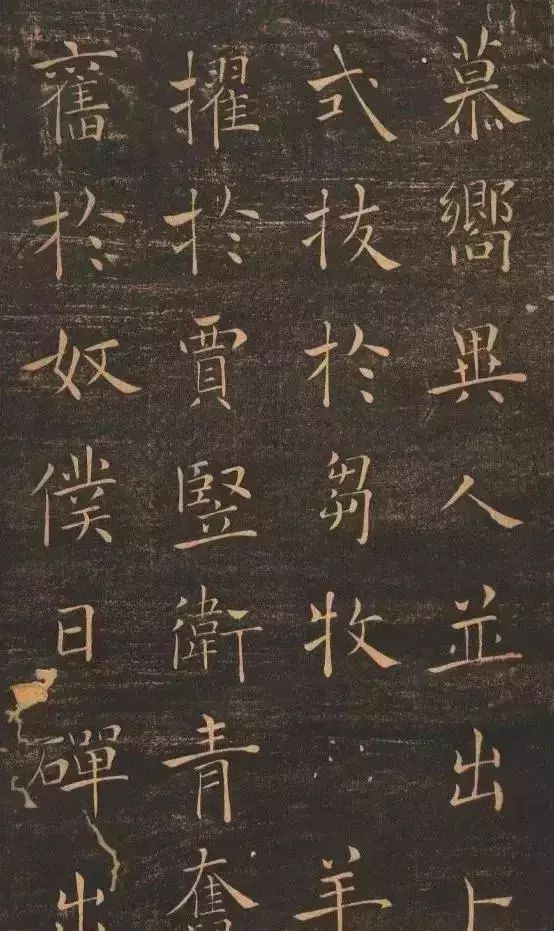 慕嚮異人並出卜
式拔於芻牧羊
擢於賈豎衛青奮
舊於奴僕日磾出